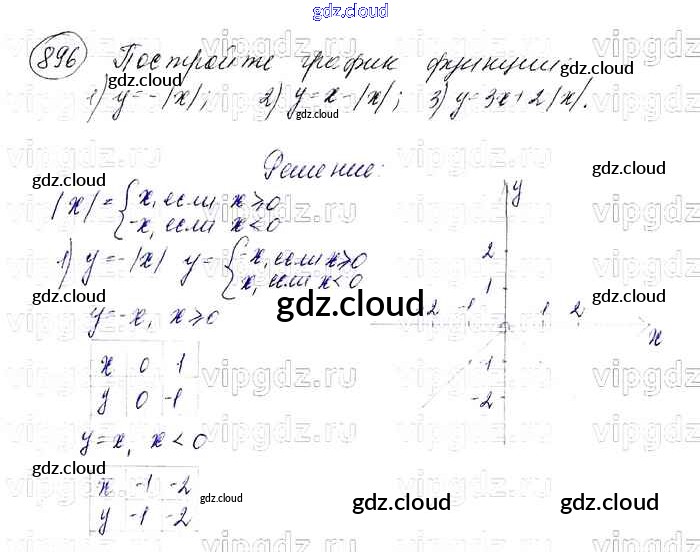 gdz.cloud
896 Постройте график функции:
1) y=-|x|; 2) y=x-|x|; 3) y=3x+2|x|.
Решение:
|x|={x, если x⩾0
-x, если x<0
1) y=-|x| y={-x, если x⩾0
x, если x<0
y=-x, x⩾0
x 0 1
y 0 -1
y=x, x<0
x -1 -2
y -1 -2
y
2
1
-2 -1 0 1 2
x
-1
-2
gdz.cloud
gdz.cloud
gdz.cloud
gdz.cloud
gdz.cloud
gdz.cloud
gdz.cloud
gdz.cloud
gdz.cloud
gdz.cloud
gdz.cloud
vipgdz.ru